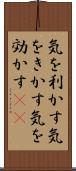 気を利かす気
をきかす気を
効かす((